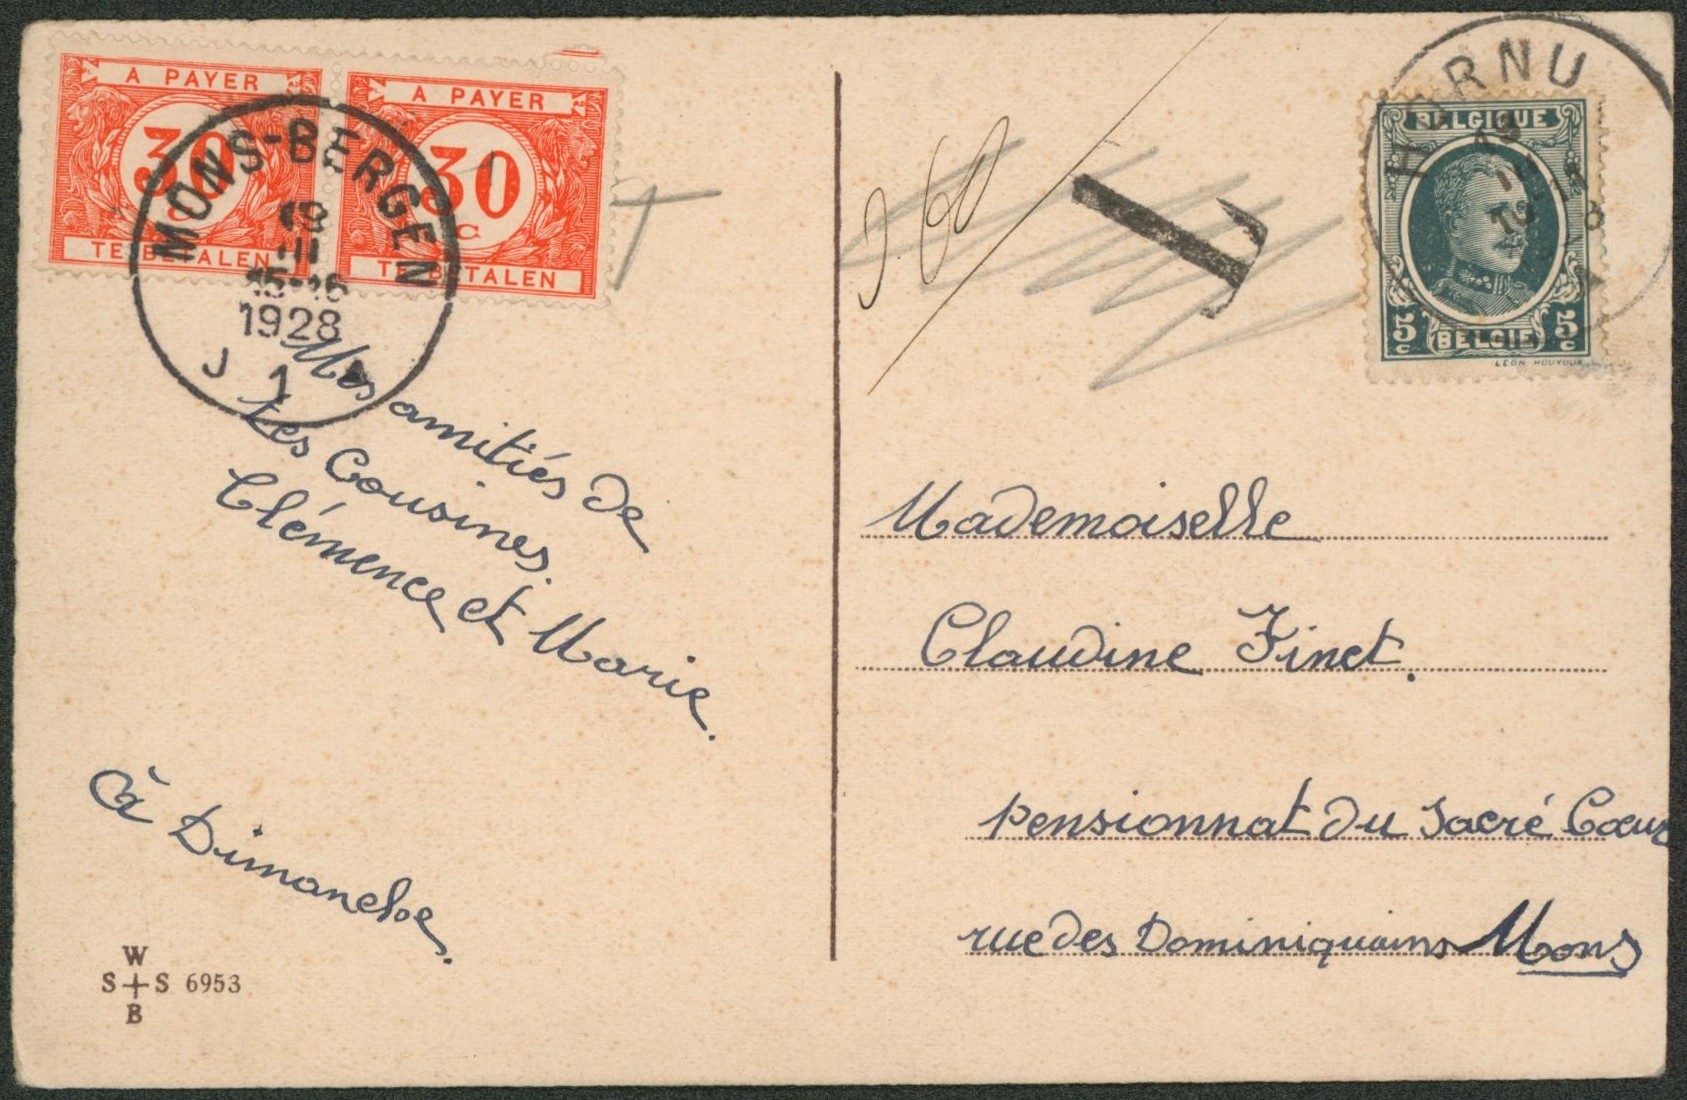 A PAYER
30
TE BETALEN
A PAYER
30
C
TE BETALEN
MONS-BERGEN
18
III
15-16
1928
J 1 J
0.60
T
HORNU
BELGIQUE
5c 5c
BELGIË
LEON HOUYOUX
Mes amitiés de
tes Cousines.
Clémence et Marie.
à Dimanche.
Mademoiselle
Claudine Finet.
pensionnat du Sacré Cœur
rue des Dominiquains Mons
W
S+S 6953
B